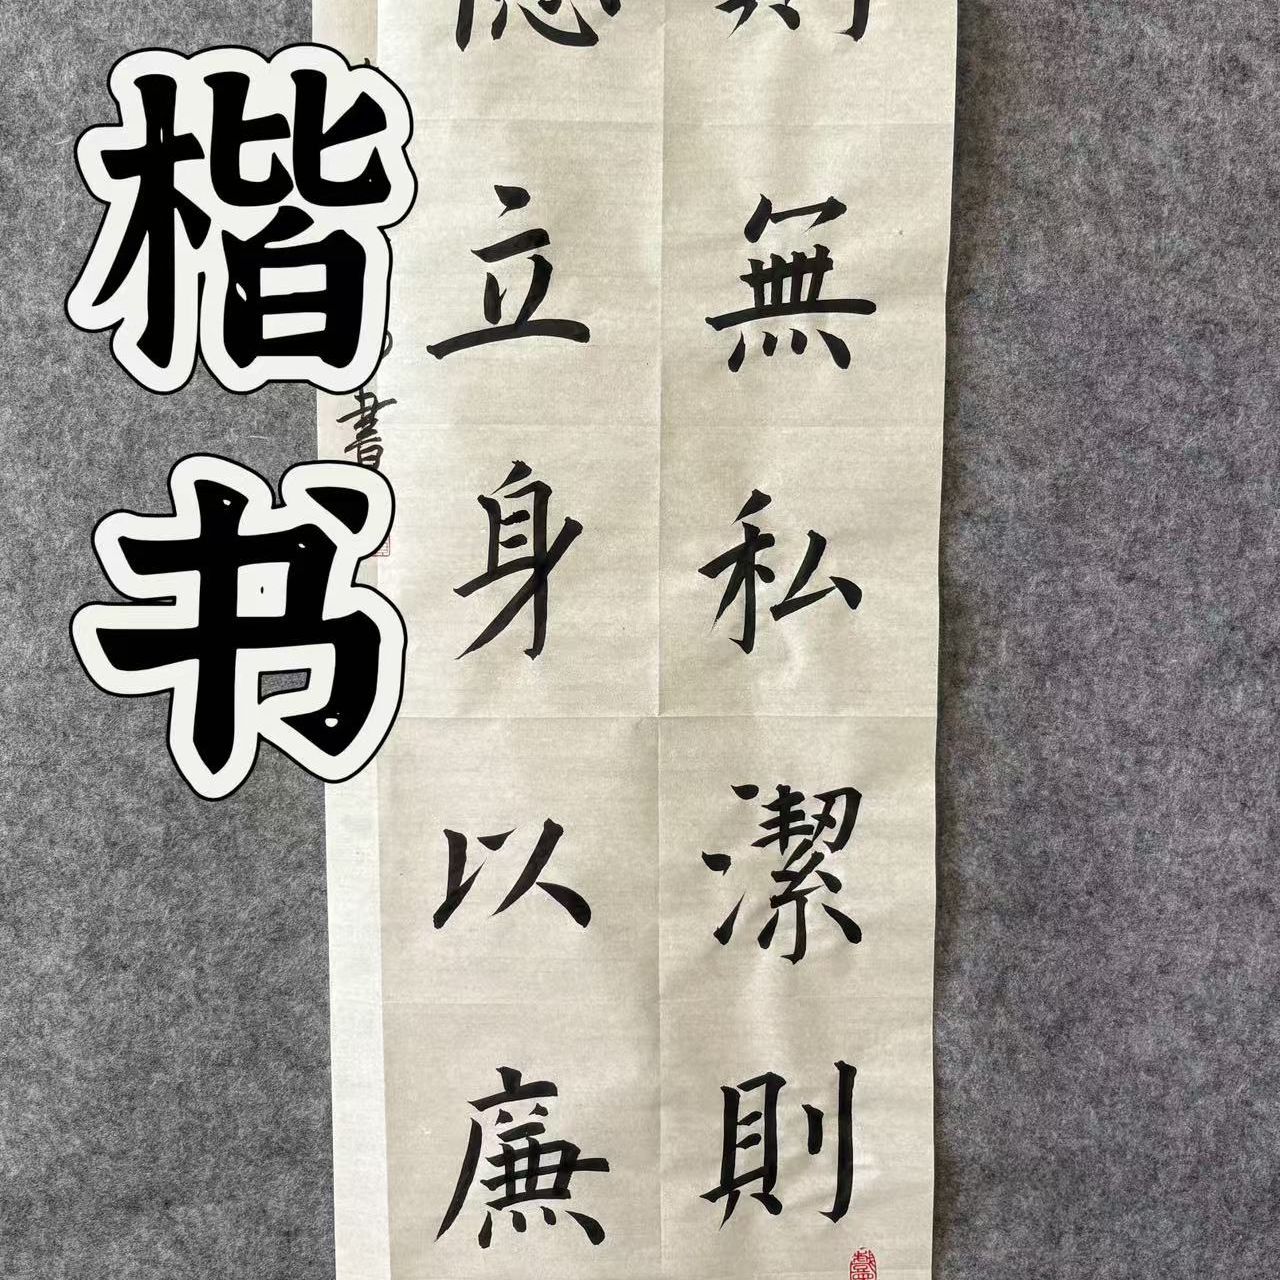 楷书
則無私潔則
立身以廉
書